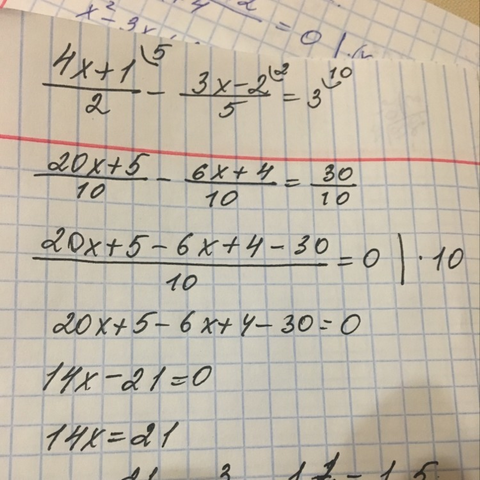 = 0
(4x+1)/2 \5 - (3x-2)/5 \2 = 3 \10
(20x+5)/10 - (6x+4)/10 = 30/10
(20x+5-6x+4-30)/10 = 0 | · 10
20x+5-6x+4-30=0
14x-21=0
14x=21